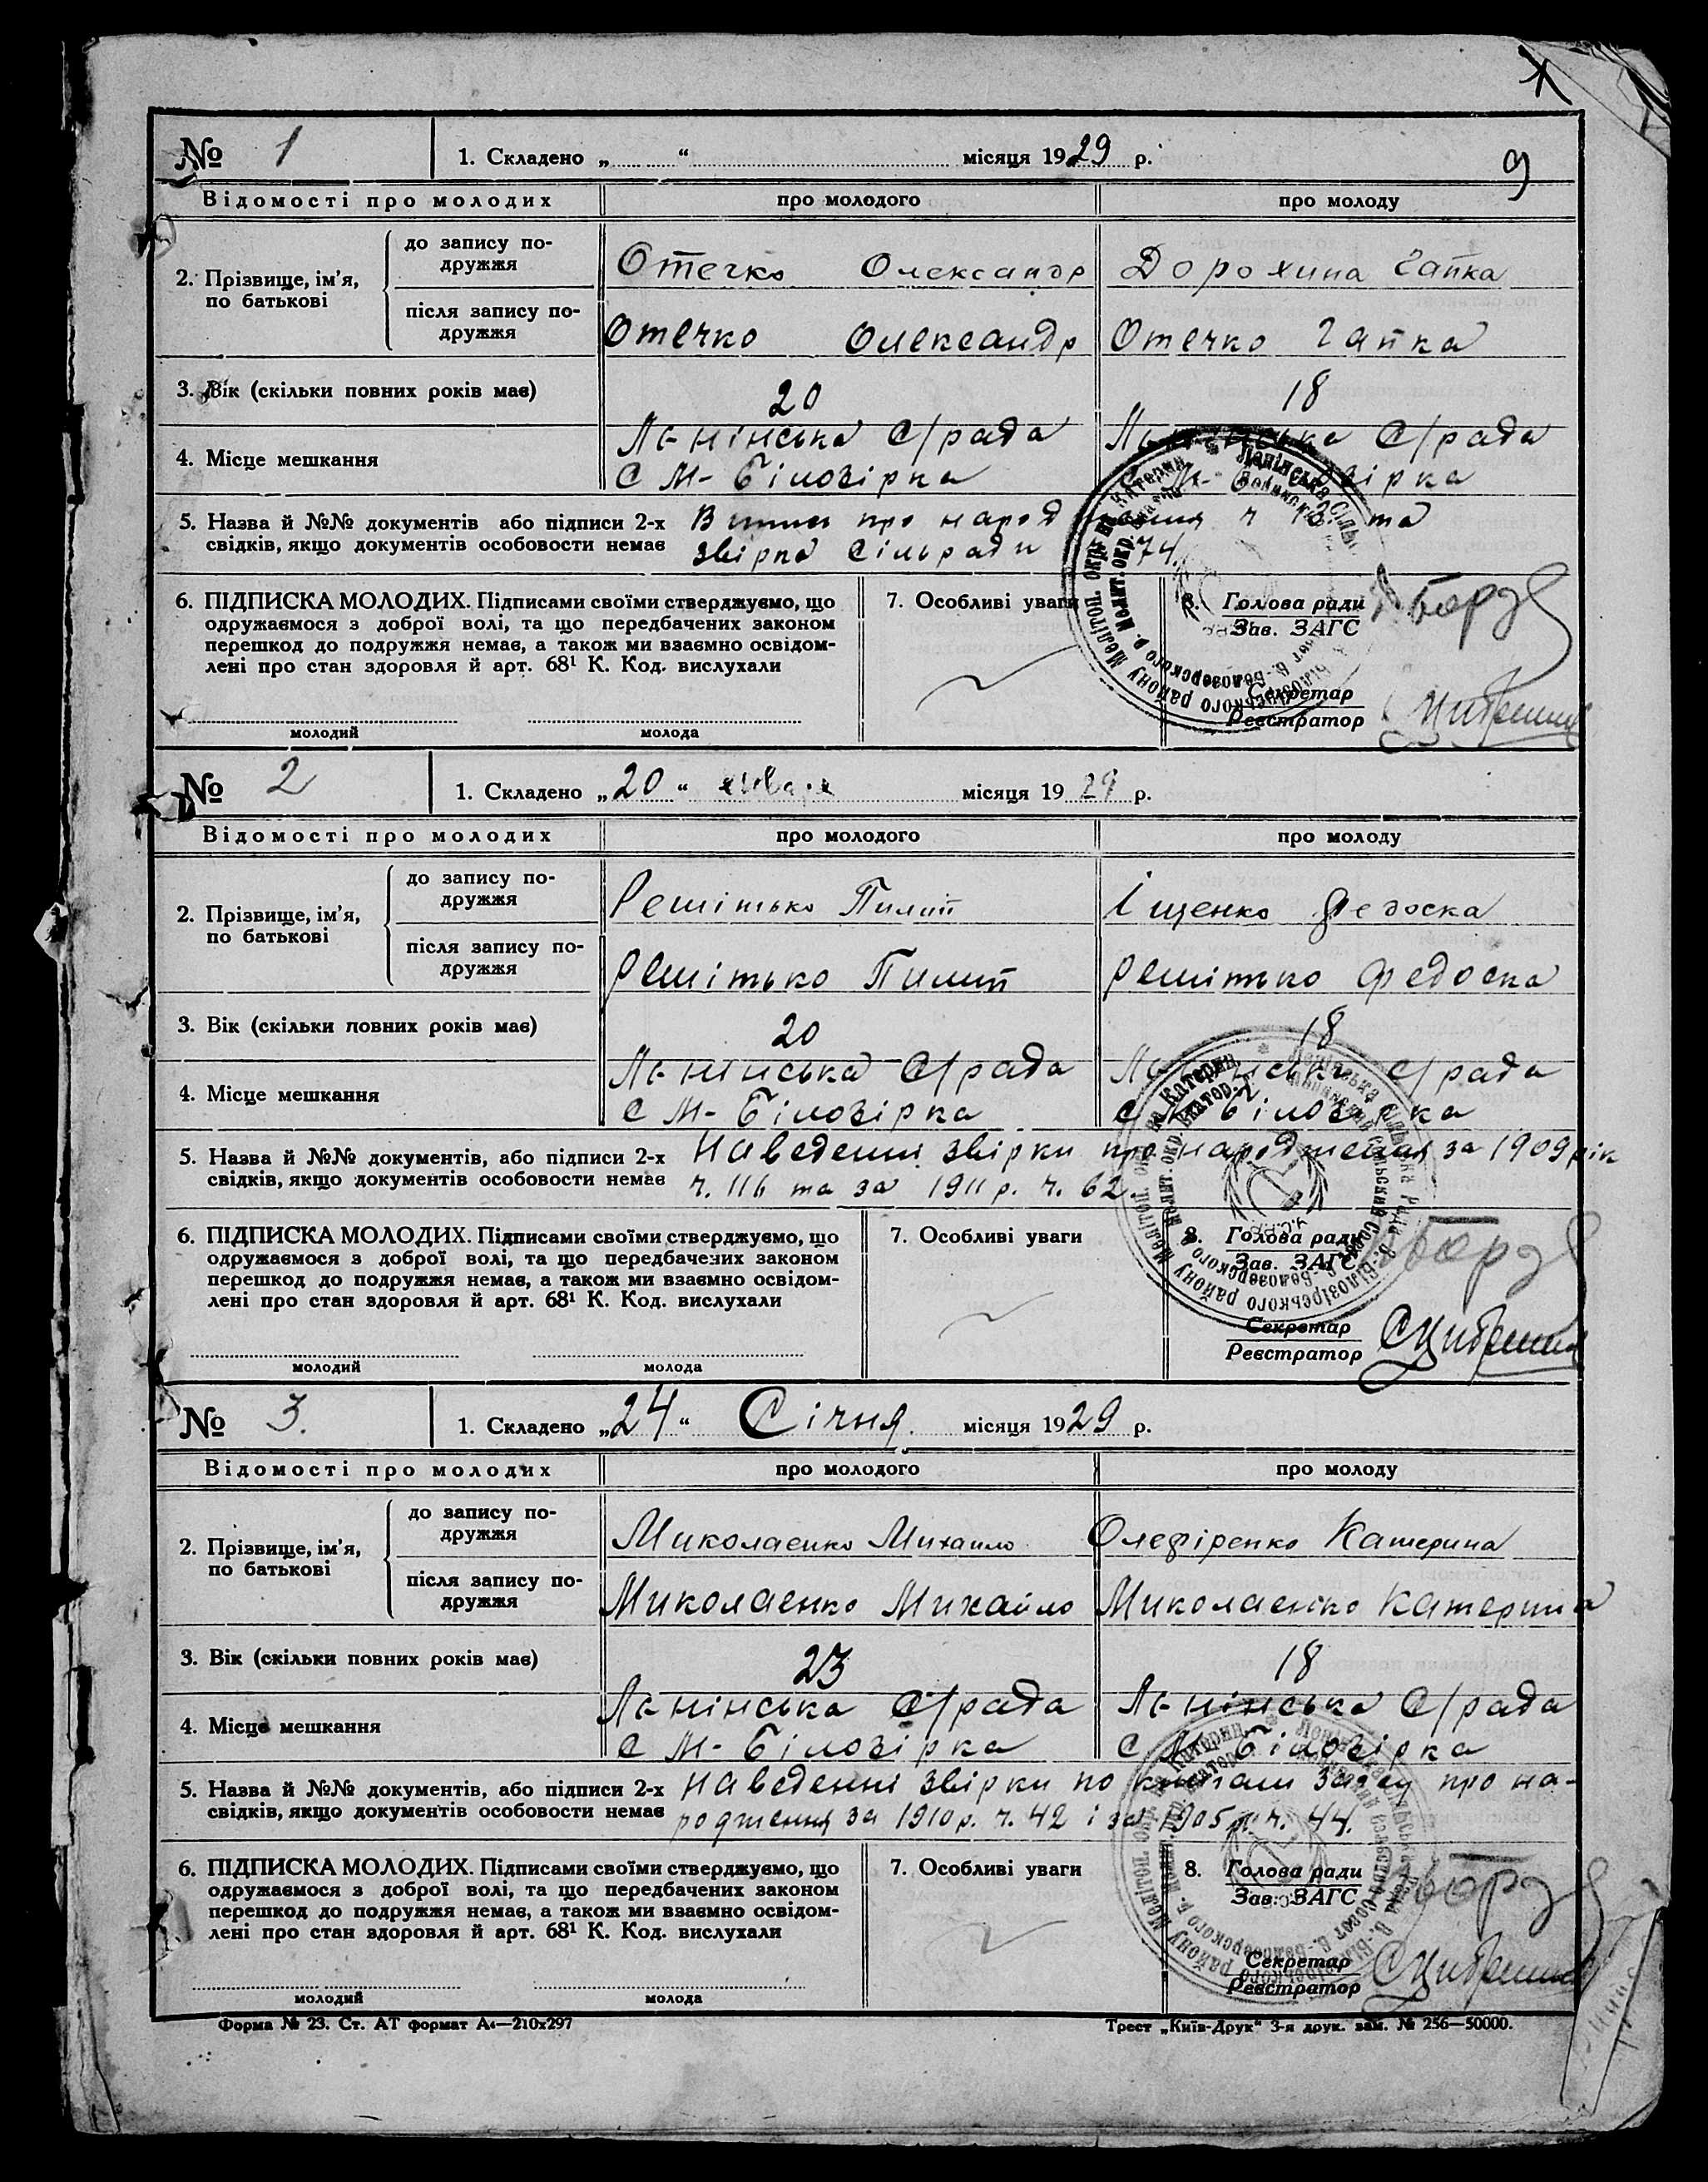 9
№ 1
1. Складено „ “ місяця 1929 р.
Відомості про молодих про молодого про молоду
2. Прізвище, ім’я, по батькові
до запису подружжя
Отечко Олександр Дорохина Гапка
після запису подружжя
Отечко Олександр Отечко Гапка
3. Вік (скільки повних років має) 20 18
4. Місце мешкання
Ленінська С/рада Ленінська С/рада
С М-Білозірка С М-Білозірка
5. Назва й №№ документів або підписи 2-х про народження ч 13 та
свідків, якщо документів особовости немає звірка Сільради 74.
6. ПІДПИСКА МОЛОДИХ. Підписами своїми стверджуємо, що
одружаємося з доброї волі, та що передбачених законом
перешкод до подружжя немає, а також ми взаємно освідом-
лені про стан здоровля й арт. 68¹ К. Код. вислухали
молодий молода
7. Особливі уваги
8. Голова ради
Зав. ЗАГС
Секретар
Реєстратор
№ 2
1. Складено „20“ января місяця 1929 р.
Відомості про молодих про молодого про молоду
2. Прізвище, ім’я, по батькові
до запису подружжя
Решітько Пилип Іщенко Федоска
після запису подружжя
Решітько Пилип Решітько Федоска
3. Вік (скільки повних років має) 20 18
4. Місце мешкання
Ленінська С/рада Ленінська С/рада
С М-Білозірка С М-Білозірка
5. Назва й №№ документів, або підписи 2-х Наведенні звірки про народження за 1909 рік
свідків, якщо документів особовости немає ч. 116 та за 1911 р. ч. 62.
6. ПІДПИСКА МОЛОДИХ. Підписами своїми стверджуємо, що
одружаємося з доброї волі, та що передбачених законом
перешкод до подружжя немає, а також ми взаємно освідом-
лені про стан здоровля й арт. 68¹ К. Код. вислухали
молодий молода
7. Особливі уваги
8. Голова ради
Зав. ЗАГС
Секретар
Реєстратор
№ 3.
1. Складено „24“ Січня місяця 1929 р.
Відомості про молодих про молодого про молоду
2. Прізвище, ім’я, по батькові
до запису подружжя
Миколаенко Михаило Олефіренко Катерина
після запису подружжя
Миколаенко Михайло Миколаенко Катерина
3. Вік (скільки повних років має) 23 18
4. Місце мешкання
Ленінська С/рада Ленінська С/рада
С М-Білозірка С М-Білозірка
5. Назва й №№ документів, або підписи 2-х Наведенні звірки по книгам загсу про на-
свідків, якщо документів особовости немає родження за 1910 р. ч. 42 і за 1905 р. ч. 44.
6. ПІДПИСКА МОЛОДИХ. Підписами своїми стверджуємо, що
одружаємося з доброї волі, та що передбачених законом
перешкод до подружжя немає, а також ми взаємно освідом-
лені про стан здоровля й арт. 68¹ К. Код. вислухали
молодий молода
7. Особливі уваги
8. Голова ради
Зав. ЗАГС
Секретар
Реєстратор
Форма № 23. Ст. АТ формат А₄—210х297 Трест „Київ-Друк“ 3-я друк. зам. № 256—50000.